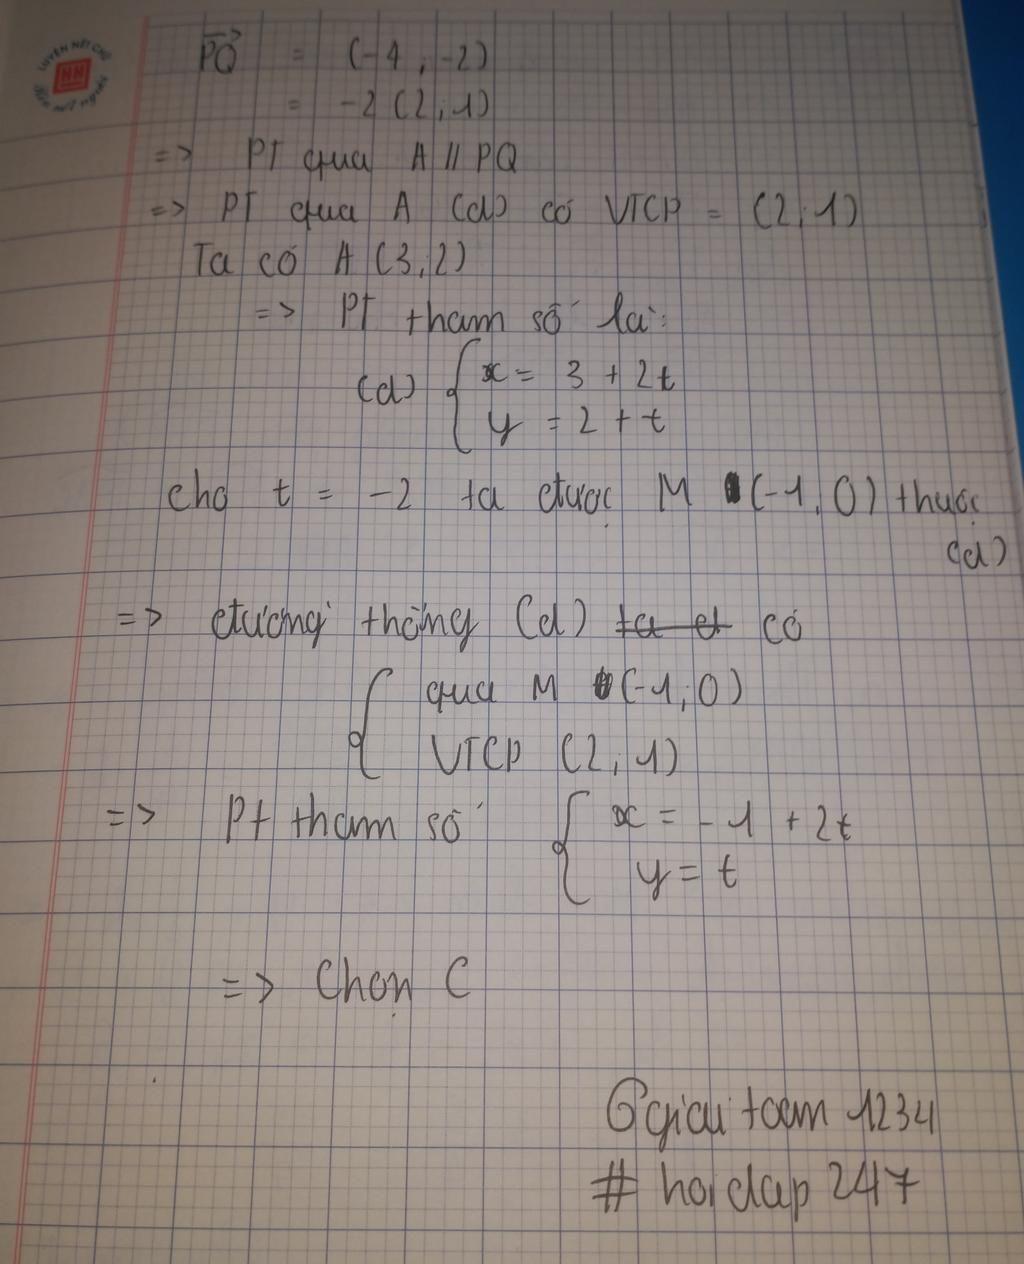 LUYỆN NÉT CHỮ
NN
Rèn nết người
PQ = (-4, -2)
= -2 (2, 1)
=> PT qua A // PQ
=> PT qua A (d) có VTCP = (2, 1)
Ta có A (3, 2)
=> PT tham số là:
(d) { x = 3 + 2t
y = 2 + t
cho t = -2 ta được M (-1, 0) thuộc
(d)
=> đường thẳng (d) ta đ có
{ qua M (-1, 0)
VTCP (2, 1)
=> Pt tham số { x = -1 + 2t
y = t
=> Chọn C
giai toan 1234
# hoidap 247